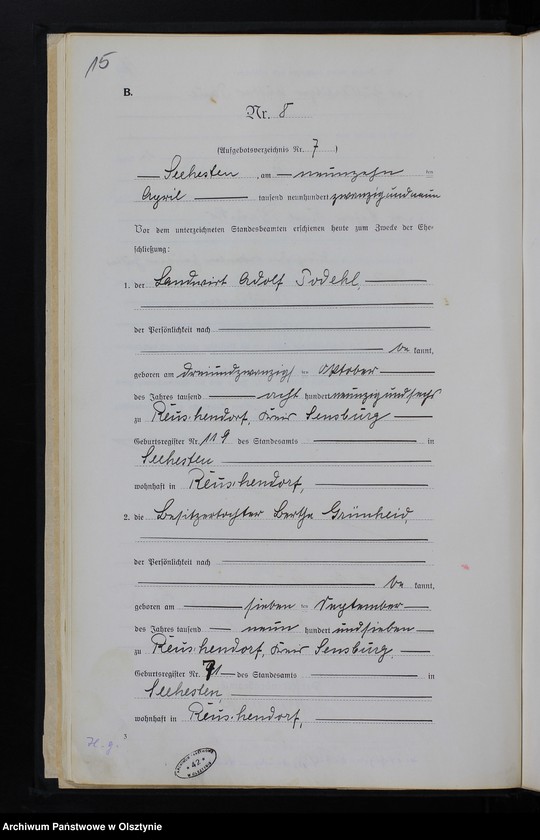 15
B.
Nr. 8
(Aufgebotsverzeichnis Nr. 7)
Seehesten, am neunzehn ten
April tausend neunhundert zwanzig und neun
Vor dem unterzeichneten Standesbeamten erschienen heute zum Zwecke der Ehe-
schließung:
1. der Landwirt Adolf Podehl,
der Persönlichkeit nach
be kannt,
geboren am dreiundzwanzigs ten Oktober
des Jahres tausend acht hundert neunzig und sechs
zu Reuschendorf, Kreis Sensburg
Geburtsregister Nr. 119 des Standesamts in
Seehesten
wohnhaft in Reuschendorf,
2. die Besitzertochter Bertha Grünheid,
der Persönlichkeit nach
be kannt,
geboren am sieben ten September
des Jahres tausend neun hundert und sieben
zu Reuschendorf, Kreis Sensburg,
Geburtsregister Nr. 71 des Standesamts in
Seehesten,
wohnhaft in Reuschendorf,
3
42
W OLSZTYNIE
Archiwum Państwowe w Olsztynie